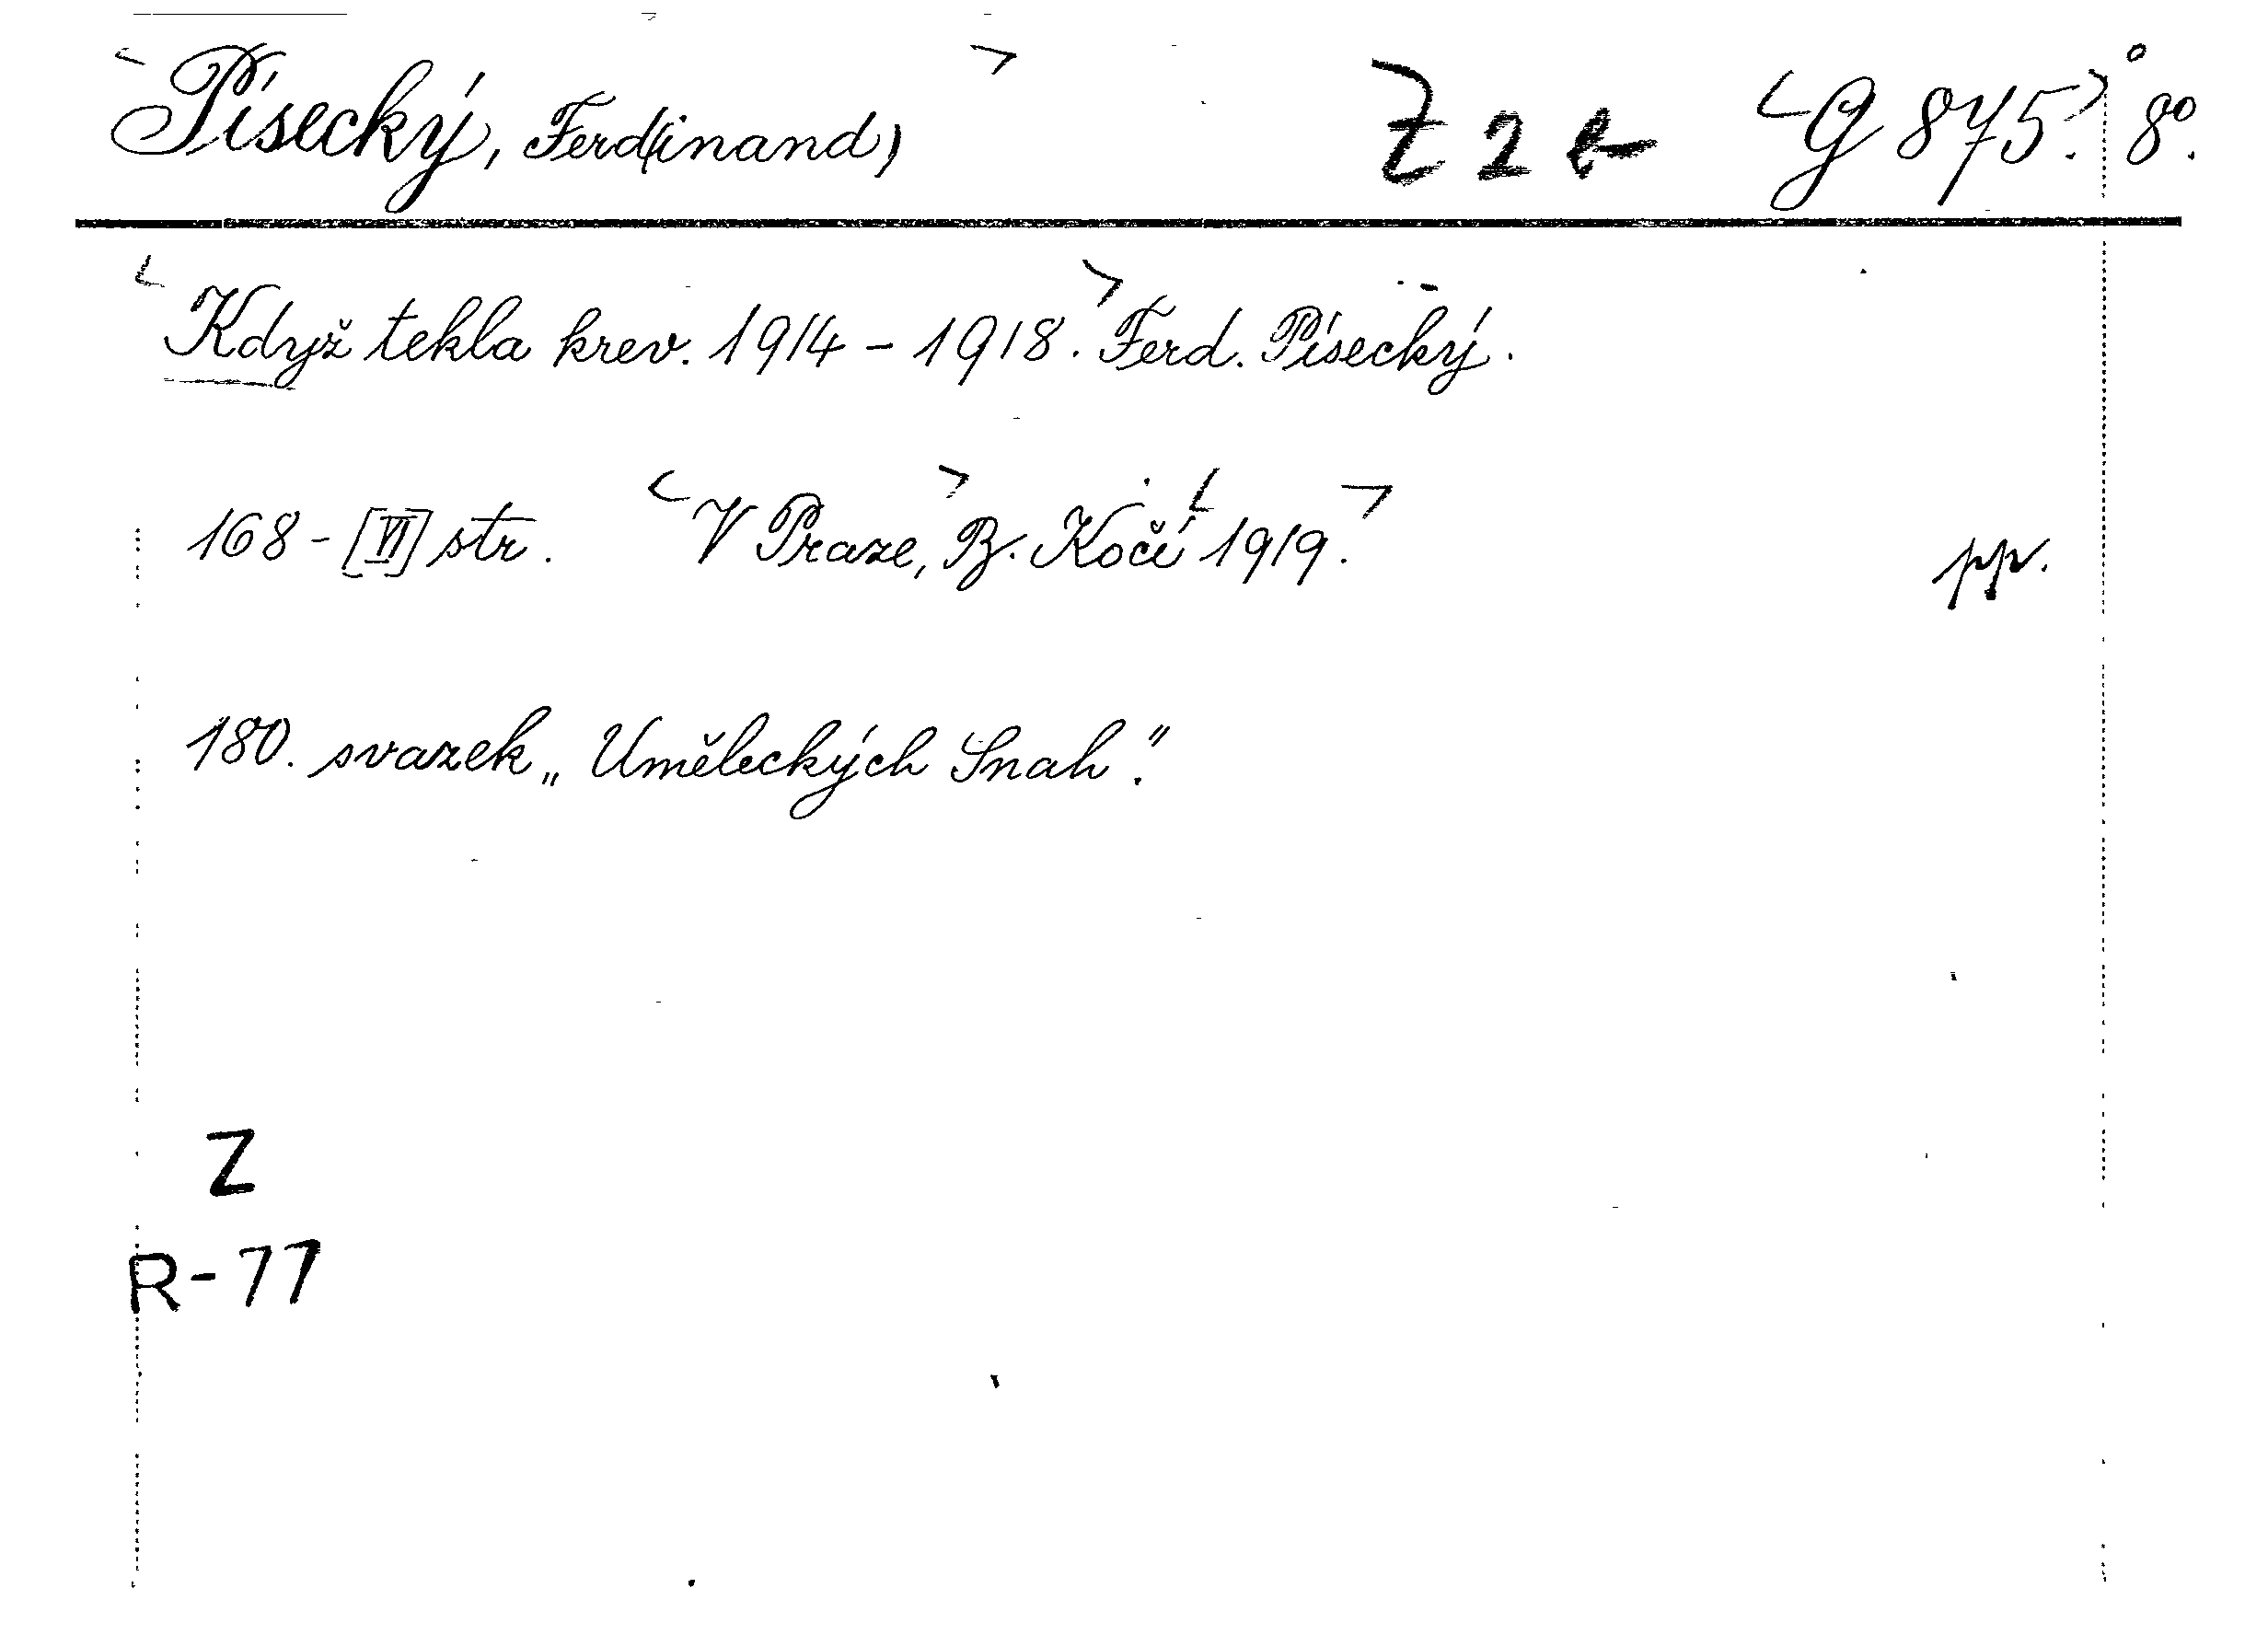 Písecký, Ferd(inand) Z 2 e G 875. 8°.
Když tekla krev. 1914 - 1918. Ferd. Písecký.
168 - [VI] str. V Praze, B. Kočí 1919. pp.
180. svazek „Uměleckých Snah".
Z
R-77